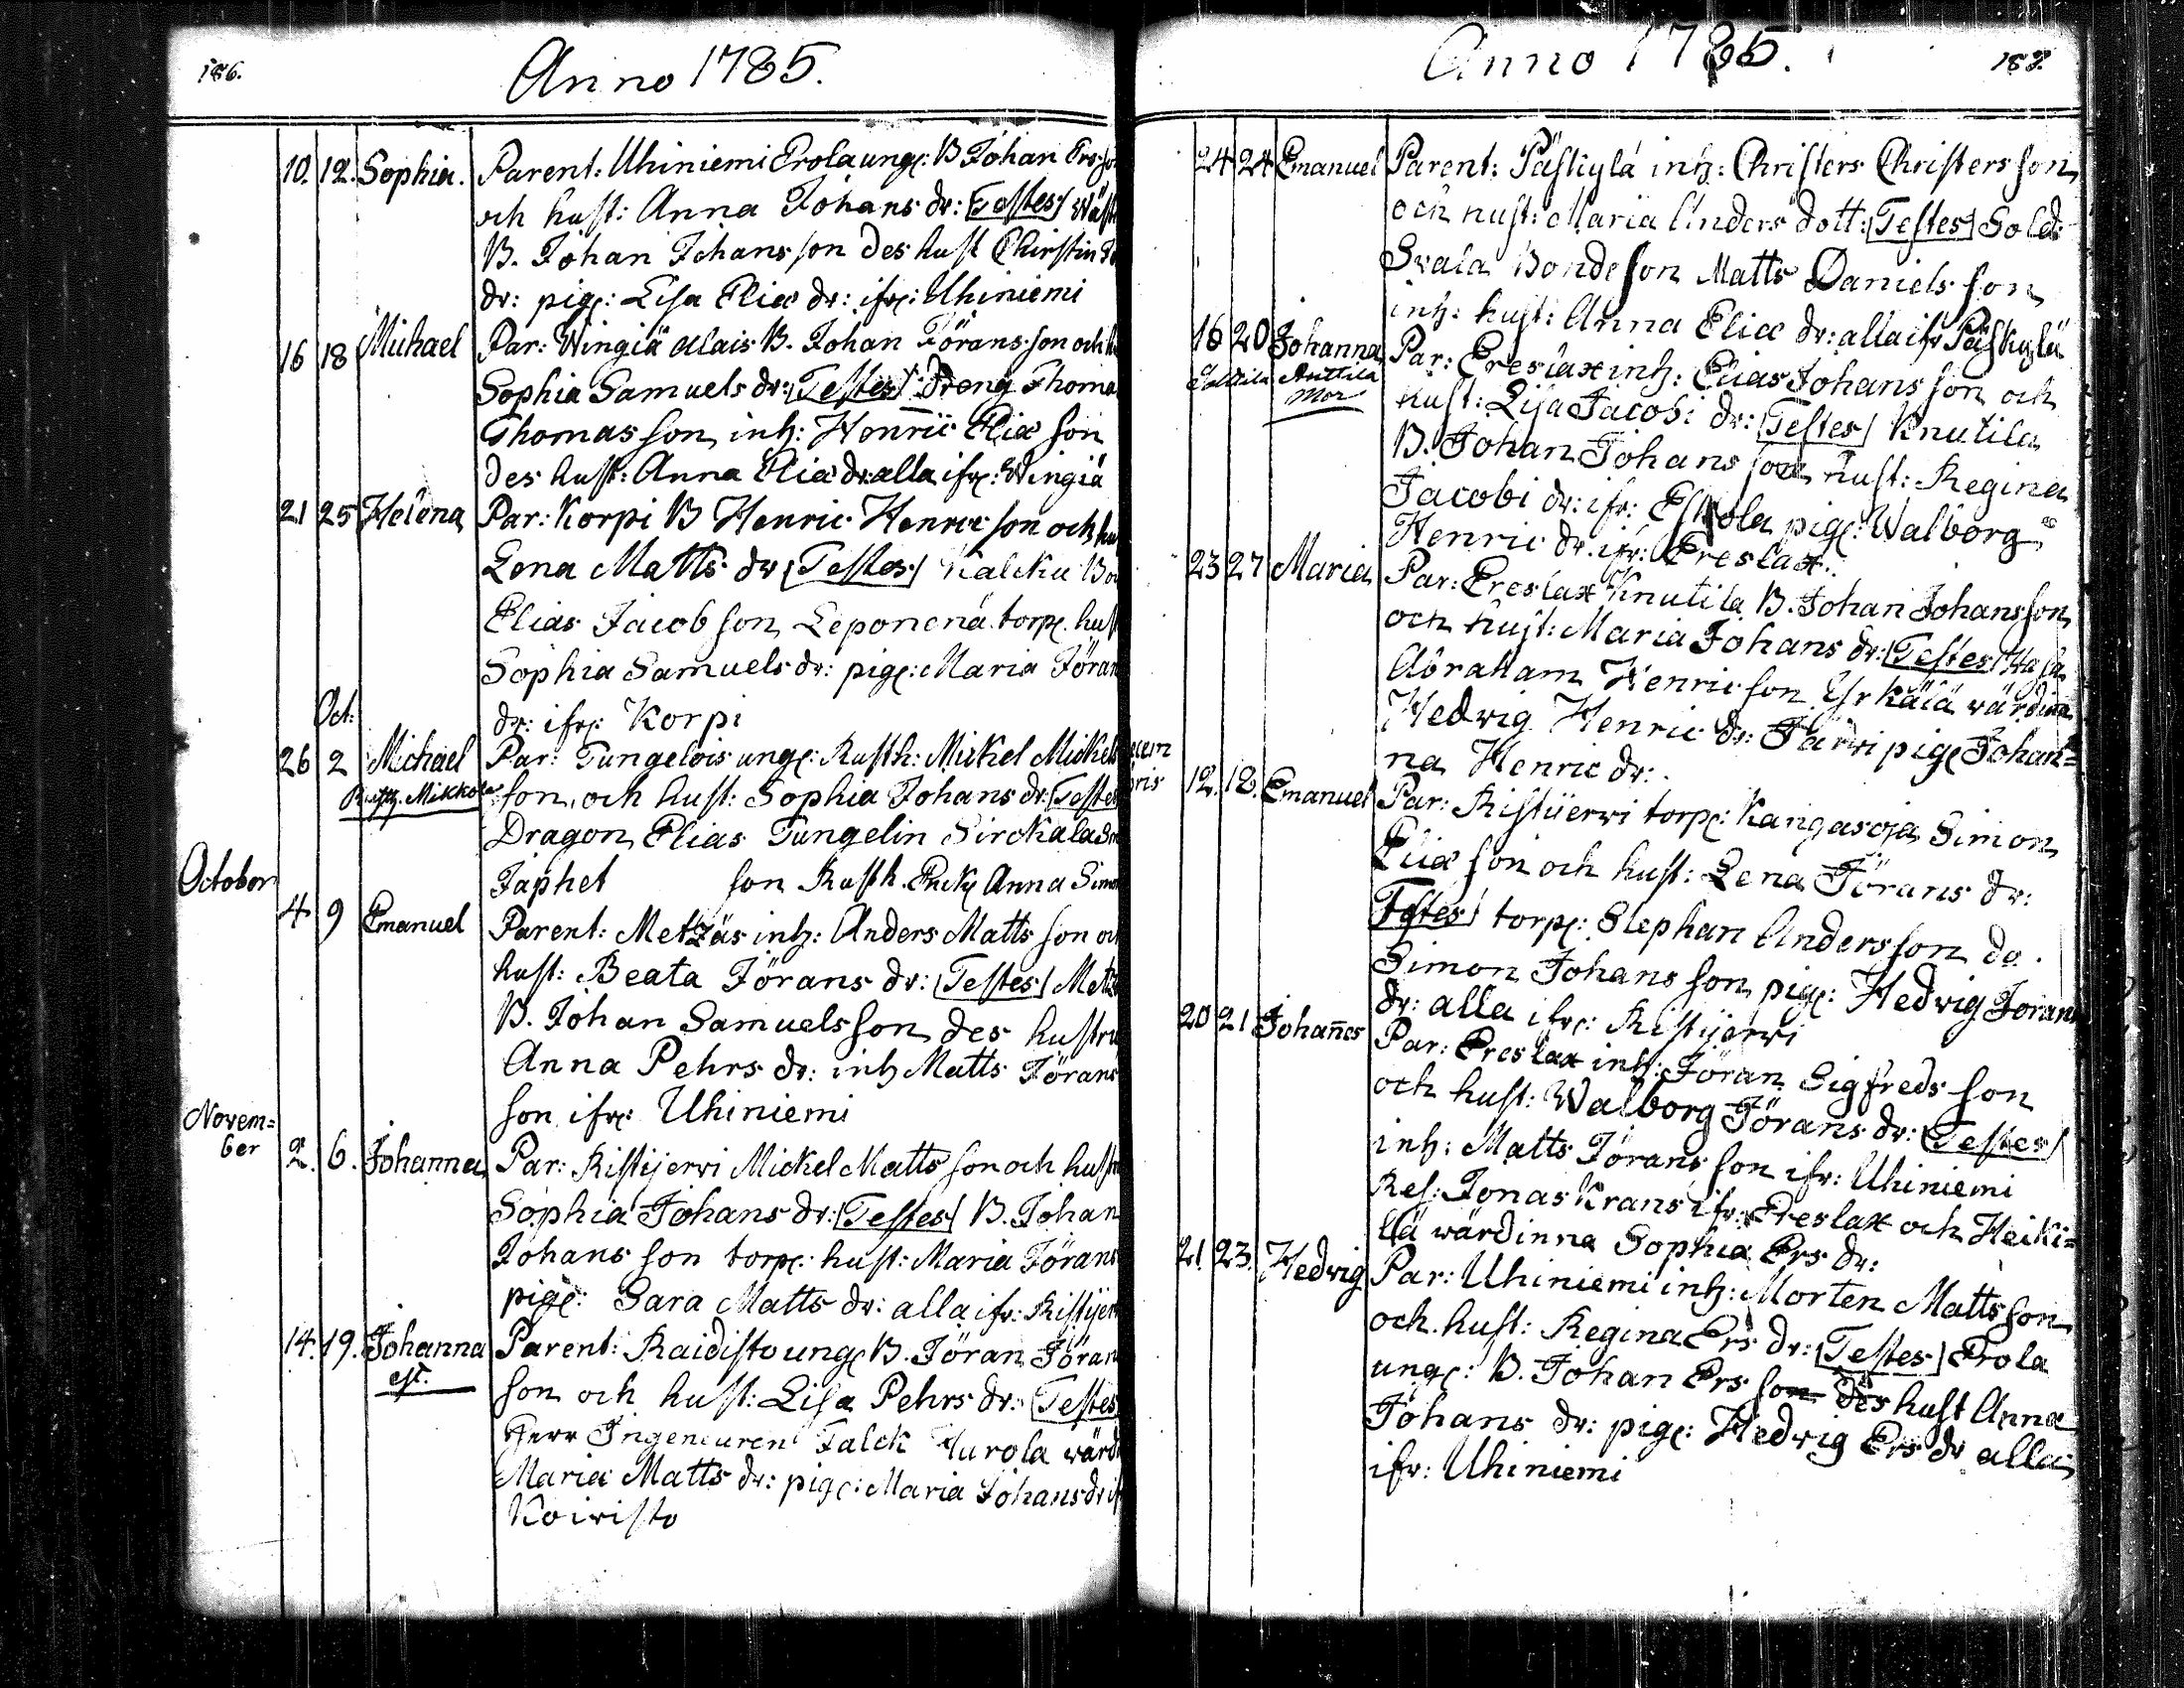 186.
Anno 1785.
10. 12. Sophia. Parent: Uhiniemi Erola ungc: B Johan Ers son
och hust: Anna Johans dr: [Testes]
B. Johan Johans son des hust Chirstin
dr: pigc: Lisa Eliæ dr: ifrc: Uhiniemi
16 18 Michael Par: Wingiä alais B. Johan Jörans son och
Sophia Samuels dr: [Testes] Dreng Thoma
Thomas son inh: Henric Eliæ son
des hust: Anna Eliæ dr: alla ifrc: Wingiä
21 25 Helena Par: Korpi B Henric Henric son och
Lena Matts dr [Testes] Kalcku
Elias Jacob son Leponená torpc. hust
Sophia Samuels dr: pigc: Maria Jöran
Oct: dr: ifrc: Korpi
26 2 Michael Par: Tungelois ungc: Rusth: Mickel Mickels
Mikkola son, och hust: Sophia Johans dr: [Testes
Dragon Elias Tungelin Sirckala
October Japhet son Rusth. Encky Anna Simo
4 9 Emanuel Parent: Metzäs inh: Anders Matts son
hust: Beata Jörans dr: [Testes] Metz
B. Johan Samuels son des hustru
Anna Pehrs dr: inh Matts Jörans
son ifrc: Uhiniemi
Novem=
ber 2. 6. Johanna Par: Ristijerwi Mickel Matts son och hust
Sophia Johans dr: [Testes] B. Johan
Johans son torpc: hust: Maria Jörans
pigc: Sara Matts dr: alla ifr: Ristijer
14. 19. Johanna Parent: Raidisto ungc B. Jöran Jöran
son och hust: Lisa Pehrs dr: [Testes
Herr Ingeneuren Falck Yurola wärd
Maria Matts dr: pigc: Maria Johans dr
Koiwisto
Anno 1785.
187.
24 24 Emanuel Parent: Päskylä inh: Christers Christers son
och hust: Maria Anders dott: [Testes] Sold:
Swala Bonde son Matts Daniels son
inh: hust: Anna Eliæ dr: alla ifr Päskylä
16 20 Johanna Par: Ereslax inh: Elias Johans son och
Anttila
Mor hust: Lisa Jacobi dr: [Testes] Knutila
B. Johan Johans son hust: Regina
Jacobi dr: ifr: Eskola pigc: Walborg
Henric dr. ifr: Ereslax.
23 27 Maria Par: Ereslax Knutila B. Johan Johans son
och hust: Maria Johans dr: [Testes]
Abraham Henric son Yrkälä wärdina
Hedwig Henric dr: Järwi pigc Johan=
na Henric dr:
12. 18. Emanuel Par: Ristijerwi torpc: Kangasoja Simon
Eliæ son och hust: Lena Jörans dr:
[Testes] torpc: Stephan Anders son do.
Simon Johans son pigc: Hedwig Jörans
dr: alla ifrc: Ristijerwi
20 21 Johan̄es Par: Ereslax inh: Jöran Sigfreds son
och hust: Walborg Jörans dr: [Testes]
inh: Matts Jörans son ifr: Uhiniemi
Res: Jonas Krans ifr: Ereslax och Heiki=
lä wärdinna Sophia Ers dr:
21. 23. Hedwig Par: Uhiniemi inh: Morten Matts son
och hust: Regina Ers dr: [Testes] Erola
ungc: B. Johan Ers son des hust Anna
Johans dr: pigc: Hedwig Ers dr alla
ifr: Uhiniemi